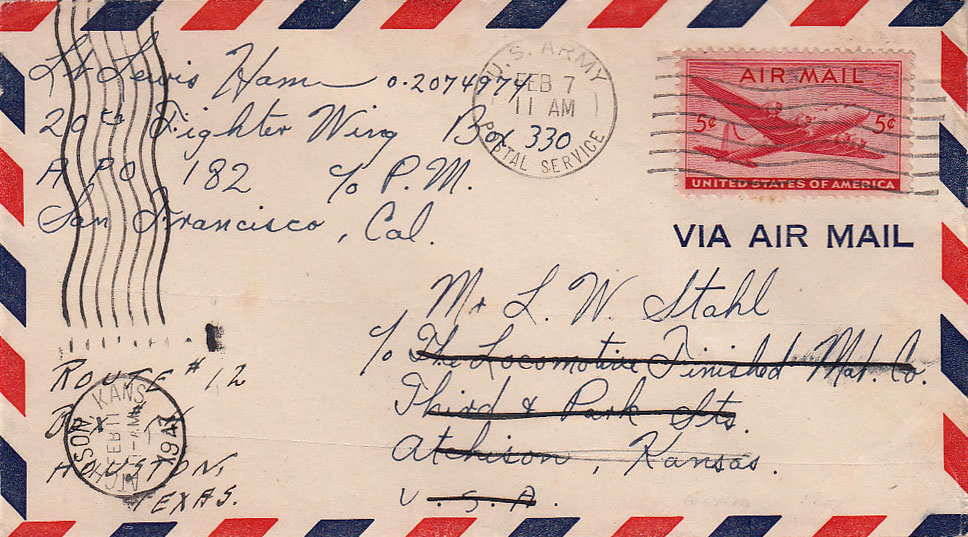 Lt Lewis Ham O-2074974
20th Fighter Wing Box 330
A PO 182 c/o P.M.
San Francisco, Cal.
U.S. ARMY
FEB 7
11 AM
POSTAL SERVICE
AIR MAIL
5¢ 5¢
UNITED STATES OF AMERICA
VIA AIR MAIL
Mr L. W. Stahl
c/o The Locomotive Finished Mat. Co.
Third & Park Sts.
Atchison, Kansas.
U.S.A.
ROUTE #12
BX
HOUSTON,
TEXAS.
ATCHISON, KANS.
FEB 11
-AM
1947